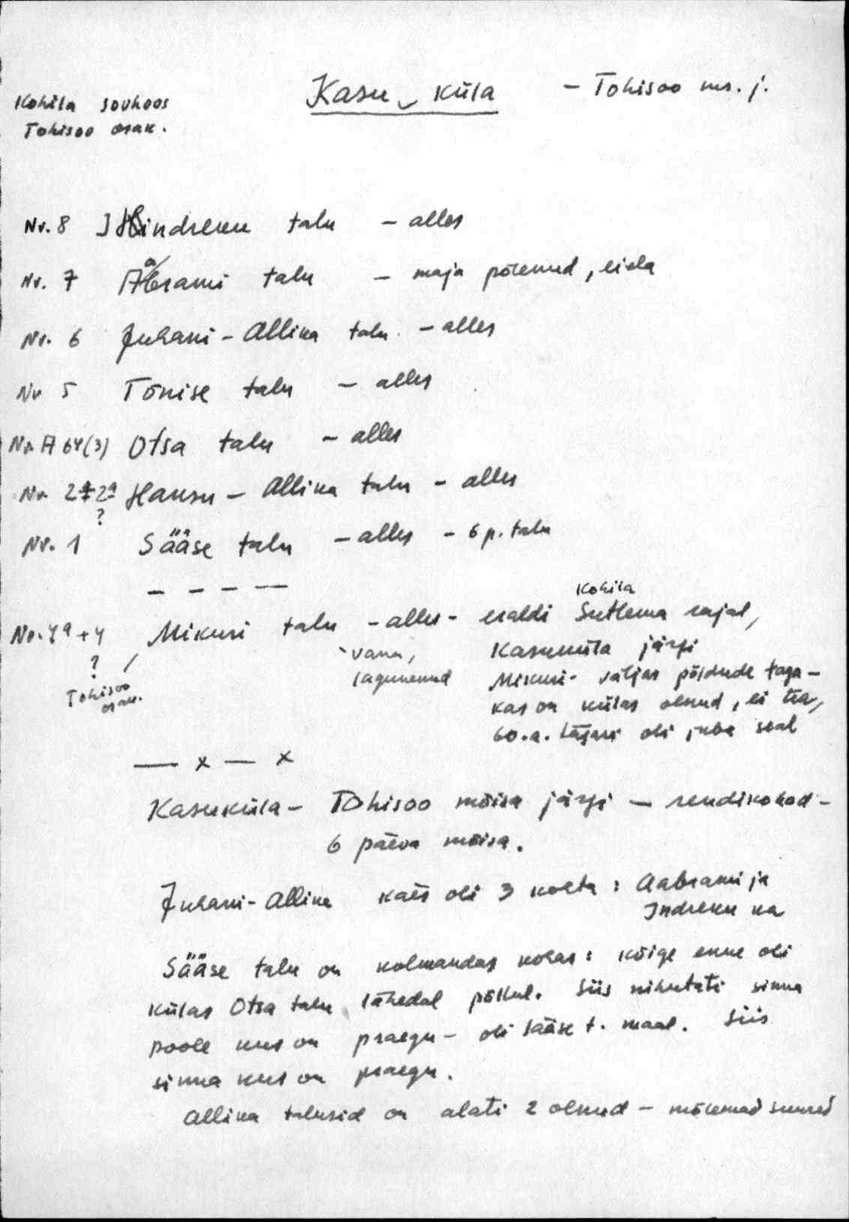 Kohila sovhoos
Tohisoo osak.
Kasu küla - Tohisoo ms. j.
Nr. 8 Hindreku talu - alles
Nr. 7 Aabrami talu - maja põlenud, ei ela
Nr. 6 Juhani-Allika talu - alles
Nr 5 Tõnise talu - alles
Otsa talu - alles
Hansu - Allika talu - alles
?
Nr. 1 Sääse talu - alles - 6 p. talu
Kohila
Nr. 4a + 4 Mikuri talu - alles - eraldi Sutlema rajal,
? vana, Kasuküla järgi
Tohisoo osak. lagunenud Mikuri - väljas põldude taga -
kas on külas olnud, ei tea,
60.a. tagasi oli juba seal
— x — x
Kasuküla - Tohisoo mõisa järgi - rendikohad -
6 päeva mõisa.
Juhani-Allika käes oli 3 kohta: Aabrami ja
Indreku ka
Sääse talu on kolmandas kohas: kõige enne oli
külas Otsa talu lähedal põllul. Siis nihutati sinna
poole kus on praegu - oli Sääse t. maal. Siis
sinna kus on praegu.
Allika talusid on alati 2 olnud - mõlemad suured